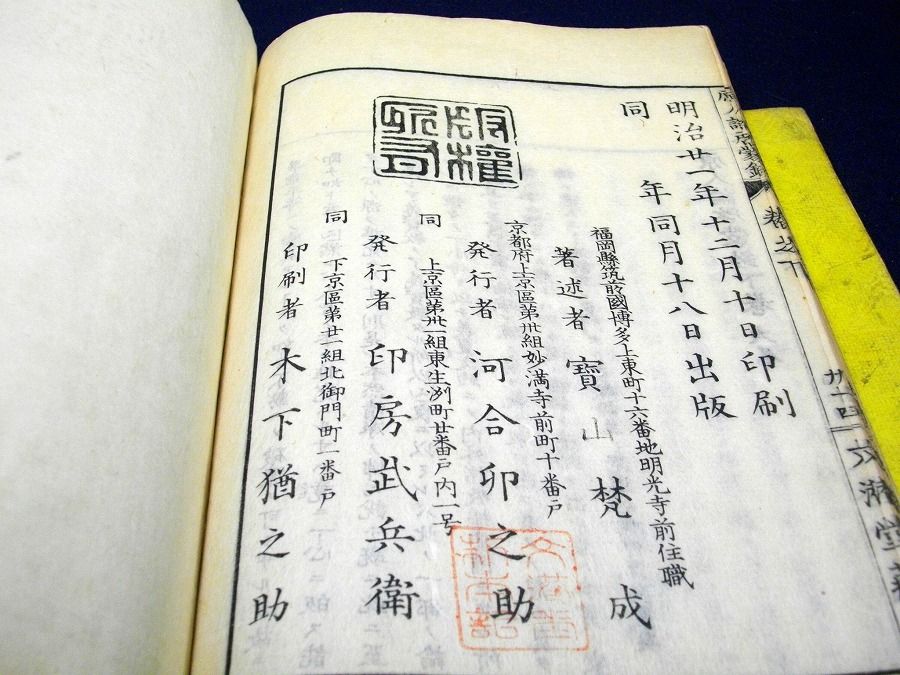 明治廿一年十二月十日印刷
同年同月十八日出版
福岡縣筑前國博多上東町十六番地明光寺前住職
著述者 寶山梵成
京都府上京區第卅組妙満寺前町十番戸
発行者 河合卯之助
同 上京區第卅一組東生洲町廿番戸内一号
発行者 印房武兵衛
同 下京區第廿一組北御門町一番戸
印刷者 木下猶之助
版權
所有
卷之下
廿四